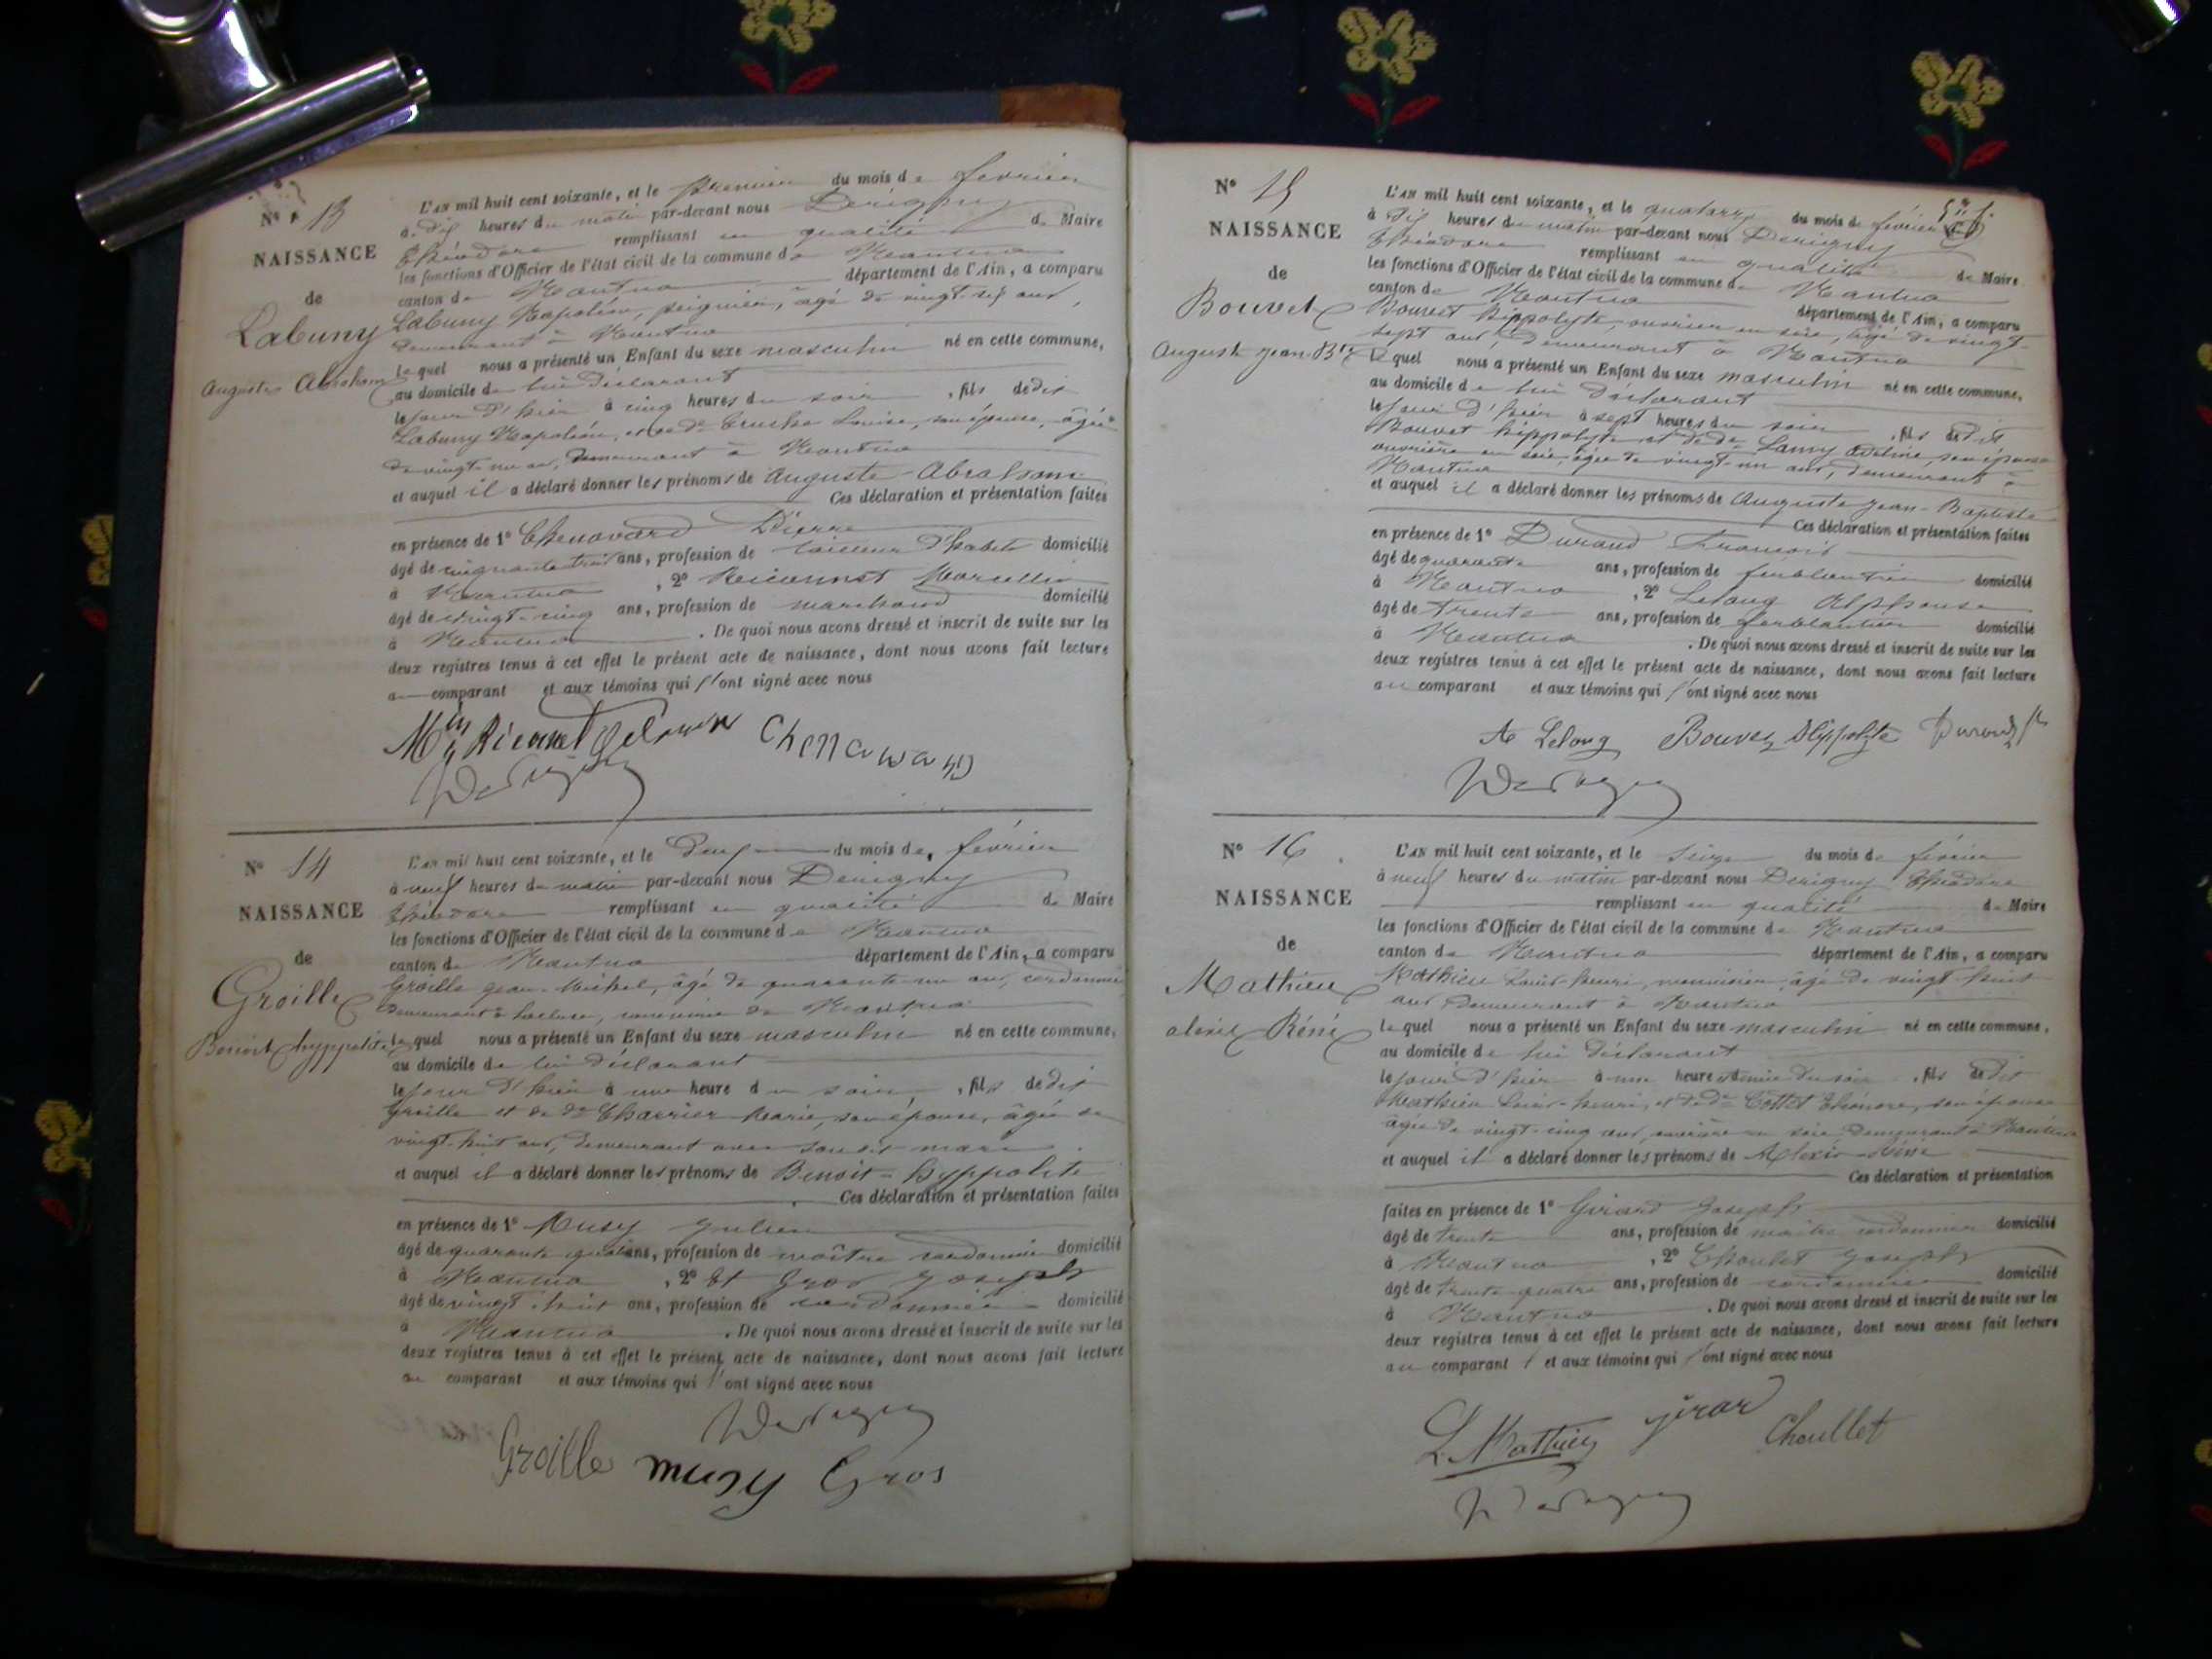 N° 13
NAISSANCE
de
Labuny
Auguste Abraham
L'AN mil huit cent soixante, et le premier du mois de février
à dix heures du matin par-devant nous Derigny
Théodore remplissant en qualité de Maire
les fonctions d'Officier de l'état civil de la commune de Nantua
canton de Nantua département de l'Ain, a comparu
Labuny Napoléon, peignier, âgé de vingt-six ans,
demeurant à Nantua
lequel nous a présenté un Enfant du sexe masculin né en cette commune,
au domicile de lui déclarant
le jour d'hier à cinq heures du soir, fils dedit
Labuny Napoléon, et de de Louise, son épouse, âgée
de vingt-un an, demeurant à Nantua
et auquel il a déclaré donner les prénoms de Auguste-Abraham
Ces déclaration et présentation faites
en présence de 1° Chenavard Pierre
âgé de cinquante trois ans, profession de tailleur d'habits domicilié
à Nantua, 2° Marcellin
âgé de vingt-cinq ans, profession de marchand domicilié
à Nantua. De quoi nous avons dressé et inscrit de suite sur les
deux registres tenus à cet effet le présent acte de naissance, dont nous avons fait lecture
au comparant et aux témoins qui l'ont signé avec nous
Chenavard
Derigny
N° 14
NAISSANCE
de
Groille
Benoit hyppolite
L'AN mil huit cent soixante, et le deux du mois de février
à neuf heures du matin par-devant nous Derigny
Théodore remplissant en qualité de Maire
les fonctions d'Officier de l'état civil de la commune de Nantua
canton de Nantua département de l'Ain, a comparu
Groille jean-Michel, âgé de quarante-un ans, cordonnier
demeurant à commune de Nantua
lequel nous a présenté un Enfant du sexe masculin né en cette commune,
au domicile de lui déclarant
le jour d'hier à une heure du soir, fils dedit
Groille et de de Charrier Marie, son épouse, âgée de
vingt-huit ans, demeurant avec son dit mari
et auquel il a déclaré donner les prénoms de Benoit-hyppolite
Ces déclaration et présentation faites
en présence de 1° Musy Julien
âgé de quarante quatre ans, profession de maître cordonnier domicilié
à Nantua, 2° et Gros Joseph
âgé de vingt-huit ans, profession de cordonnier domicilié
à Nantua. De quoi nous avons dressé et inscrit de suite sur les
deux registres tenus à cet effet le présent acte de naissance, dont nous avons fait lecture
au comparant et aux témoins qui l'ont signé avec nous
Derigny
Groille musy Gros
N° 15
NAISSANCE
de
Bouvet
Auguste jean-Bte
L'AN mil huit cent soixante, et le quatorze du mois de février
à dix heures du matin par-devant nous Derigny
Théodore remplissant en qualité de Maire
les fonctions d'Officier de l'état civil de la commune de Nantua
canton de Nantua département de l'Ain, a comparu
Bouvet hippolyte, ouvrier en soie, âgé de vingt
sept ans, demeurant à Nantua
lequel nous a présenté un Enfant du sexe masculin né en cette commune,
au domicile de lui déclarant
le jour d'hier à sept heures du soir, fils dedit
Bouvet hippolyte et de de Lanvy Adeline, son épouse
ouvrière en soie, âgée de vingt-un ans, demeurant à
Nantua
et auquel il a déclaré donner les prénoms de Auguste jean-Baptiste
Ces déclaration et présentation faites
en présence de 1° Durand François
âgé de quarante ans, profession de ferblantier domicilié
à Nantua, 2° Lelong Alphonse
âgé de trente ans, profession de ferblantier domicilié
à Nantua. De quoi nous avons dressé et inscrit de suite sur les
deux registres tenus à cet effet le présent acte de naissance, dont nous avons fait lecture
au comparant et aux témoins qui l'ont signé avec nous
A Lelong Bouvet Hippolyte Durand
Derigny
N° 16
NAISSANCE
de
Mathieu
alexis Réné
L'AN mil huit cent soixante, et le seize du mois de février
à neuf heures du matin par-devant nous Derigny Théodore
remplissant en qualité de Maire
les fonctions d'Officier de l'état civil de la commune de Nantua
canton de Nantua département de l'Ain, a comparu
Mathieu Louis-henri, menuisier, âgé de vingt-huit
ans demeurant à Nantua
lequel nous a présenté un Enfant du sexe masculin né en cette commune,
au domicile de lui déclarant
le jour d'hier à une heure et demie du soir, fils dedit
Mathieu Louis-henri, et de de Cottet Eléonore, son épouse
âgée de vingt-cinq ans, ouvrière en soie demeurant à Nantua
et auquel il a déclaré donner les prénoms de Alexis-Réné
Ces déclaration et présentation
faites en présence de 1° Girard Joseph
âgé de trente ans, profession de maître cordonnier domicilié
à Nantua, 2° Choulet Joseph
âgé de trente-quatre ans, profession de cordonnier domicilié
à Nantua. De quoi nous avons dressé et inscrit de suite sur les
deux registres tenus à cet effet le présent acte de naissance, dont nous avons fait lecture
au comparant et aux témoins qui l'ont signé avec nous
L Mathieu girar Choullet
Derigny